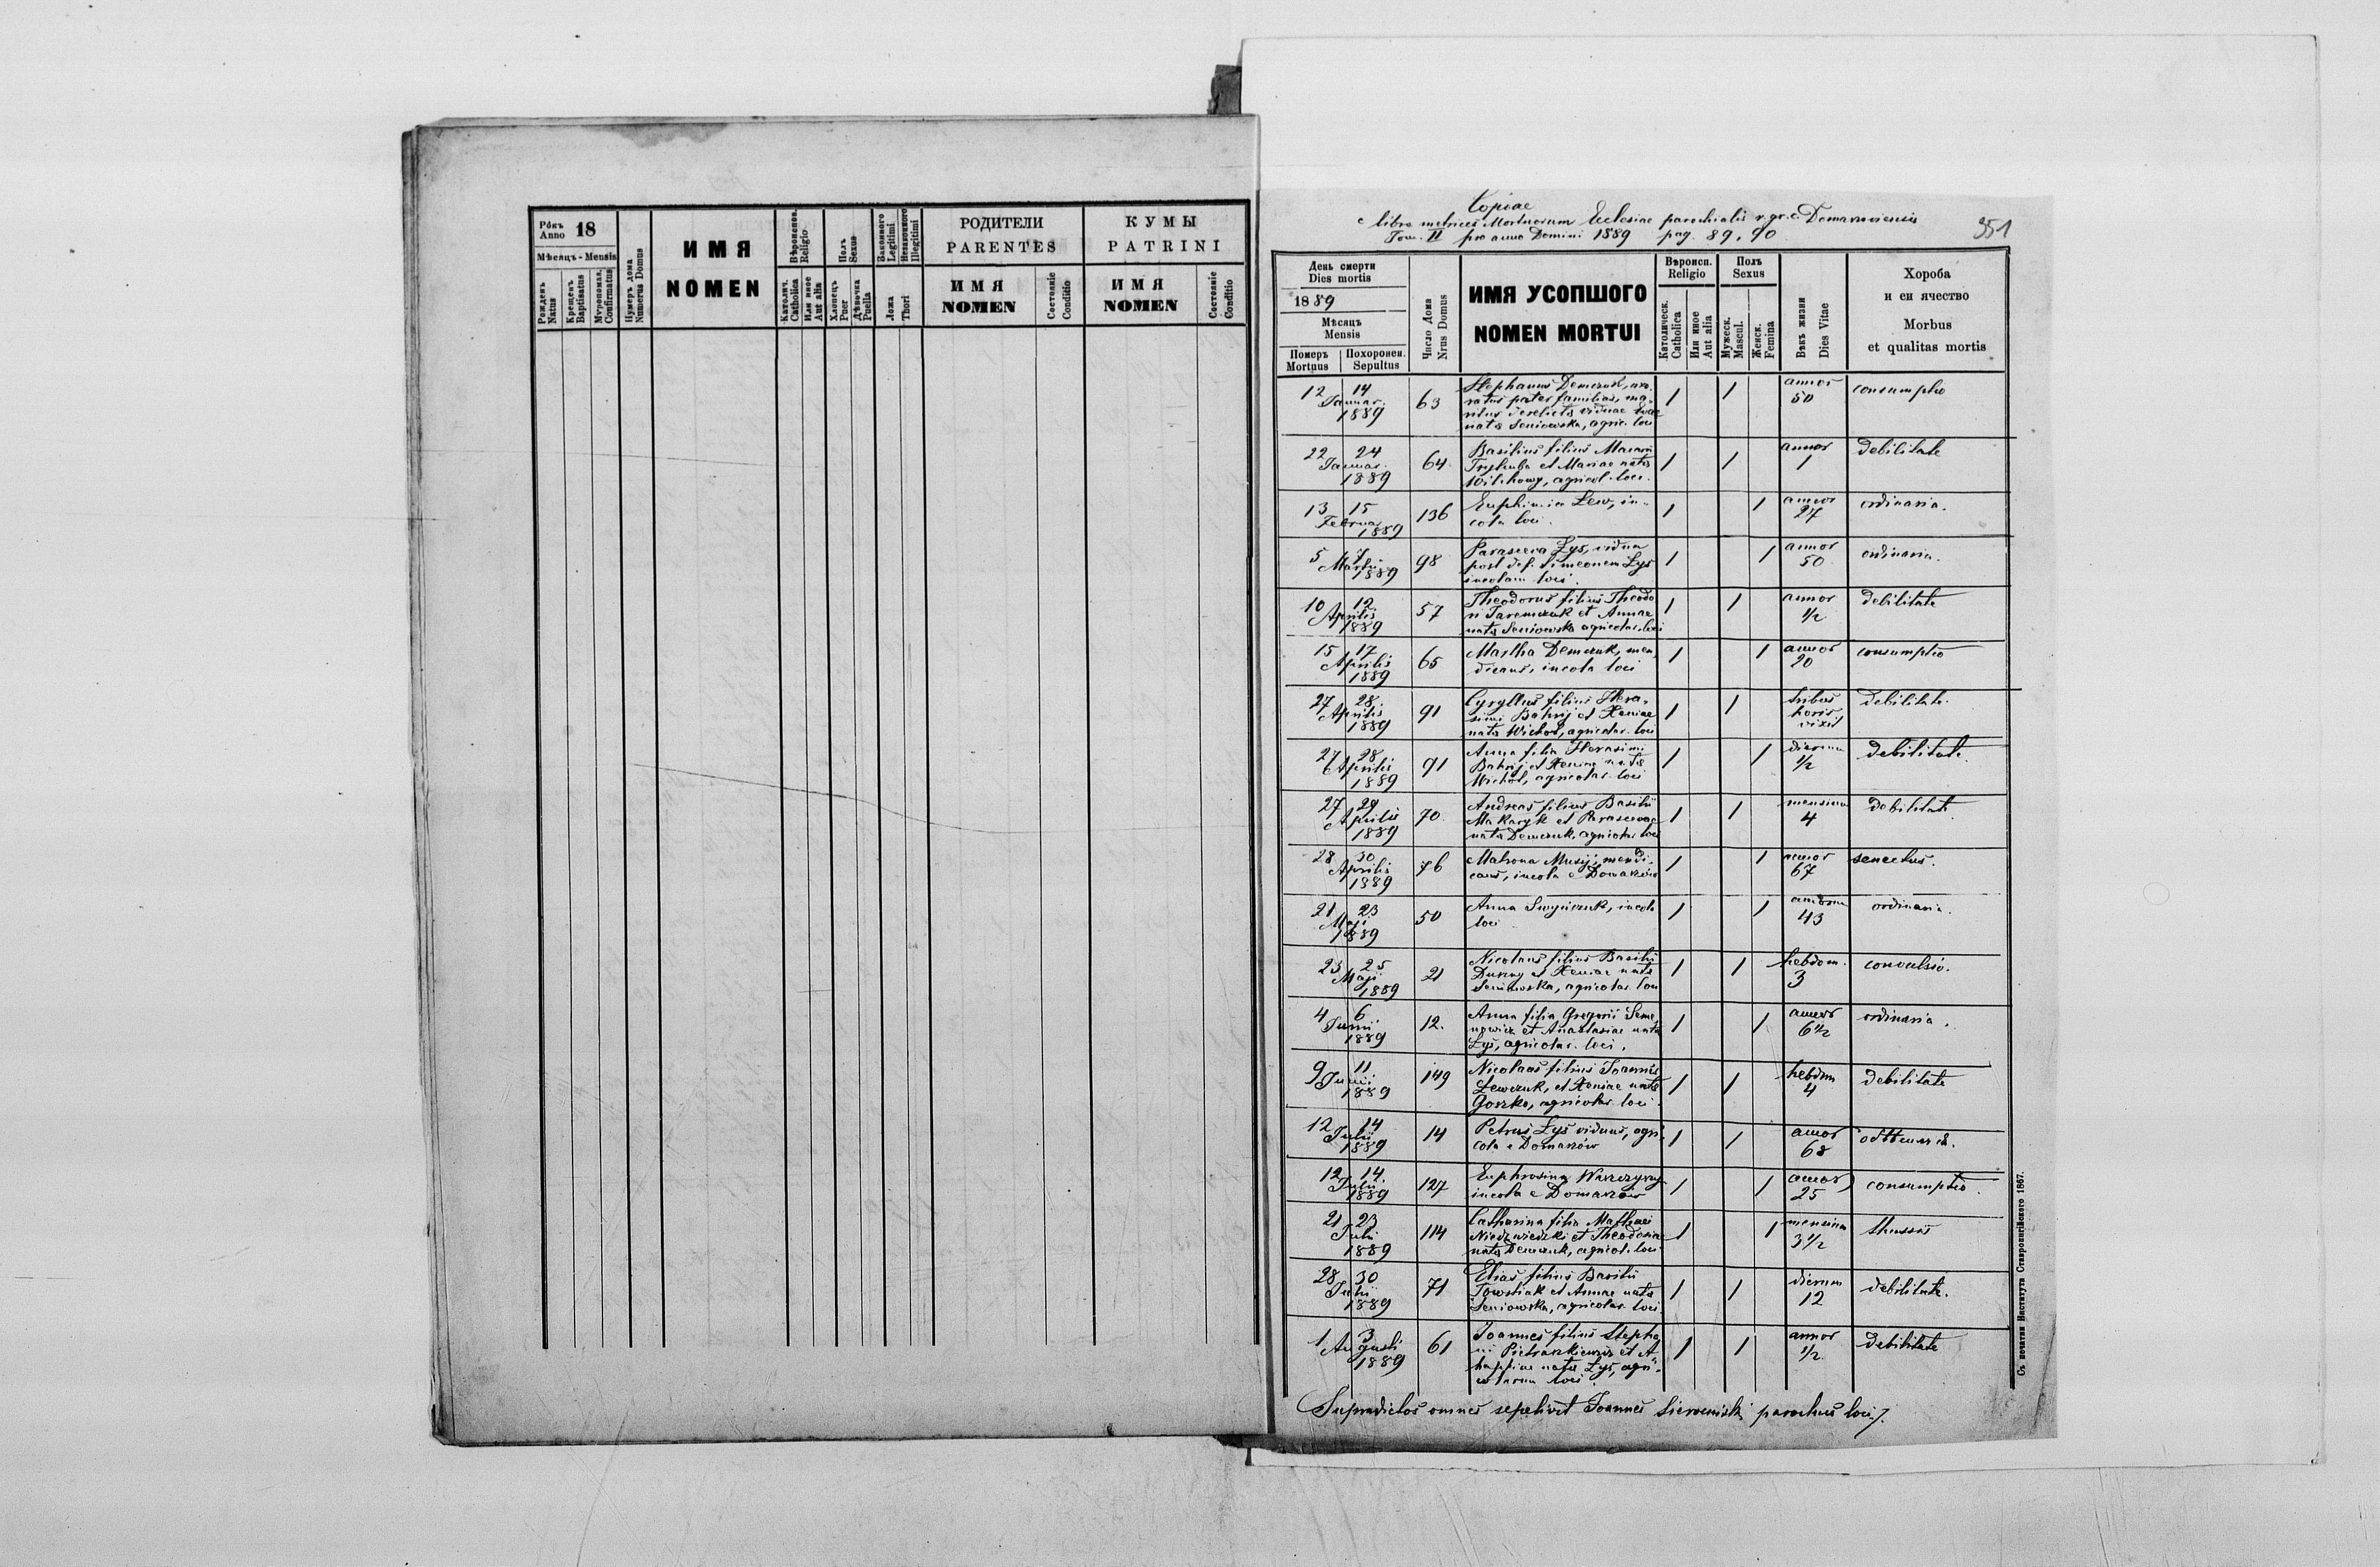 Рôкъ Anno 18
Мѣсяцъ - Mensis
Рожденъ Natus
Крещенъ Baptisatus
Мvропомаз. Confirmatus
Нумеръ дома Numerus Domus
ИМЯ
NOMEN
Вѣроиспов. Religio
Католич. Catholica
Или иное Aut alia
Полъ Sexus
Хлопецъ Puer
Дѣвочка Puella
Законного Legitimi
Незаконного Illegitimi
Ложа
Thori
РОДИТЕЛИ
PARENTES
ИМЯ
NOMEN
Состояніе Conditio
КУМЫ
PATRINI
ИМЯ
NOMEN
Состояніе Conditio
Copiae
e libro metrices Mortuorum Ecclesiae parochialis r. gr. c. Domazoviensis
Tom. II pro anno Domini 1889 pag. 89, 90
351
День смерти
Dies mortis
1889
Мѣсяцъ
Mensis
Померъ Mortuus
Похоронен. Sepultus
Число Дома
Nrus Domus
ИМЯ УСОПШОГО
NOMEN MORTUI
Вѣроисп.
Religio
Католическ. Catholica
Или иное Aut alia
Полъ
Sexus
Мужеск. Mascul.
Женск. Femina
Вѣкъ жизни
Dies Vitae
Хороба
и єи ячество
Morbus
et qualitas mortis
12 14 Januar. 1889 63 Stephanus Demczuk, uxo-
ratus pater familias, ma-
ritus derelictae viduae
nata Seniowska, agric. loci
1 1 annor 50 consumptio
22 24 Januar. 1889 64 Basilius filius Macarii
Tryhuba et Mariae nata
agricol. loci.
1 1 annor 1 debilitate
13 15 Februar 1889 136 Euphimia Lew, in-
cola loci.
1 1 annor 27 ordinaria.
5 7 Martii 1889 98 Parasceva Łys, vidua
post def. Simeonem Łys
incolam loci.
1 1 annor 50 ordinaria.
10 12 Aprilis 1889 57 Theodorus filius Theodo
ri et Annae
nata Seniowska agricolar. loci
1 1 annor 1/2 debilitate
15 17 Aprilis 1889 65 Martha Demczuk, men
dicans, incola loci
1 1 annor 20 consumptio
27 28 Aprilis 1889 91 Cyryllus filius Hera-
simi Bahrij et Xeniae
nata Wichot, agricolar. loci
1 1 tribus horis vixit debilitate.
27 28 Aprilis 1889 91 Anna filia Herasimi
Bahrij et Xeniae nata
Wichot, agricolar. loci
1 1 dierum 1/2 debilitate.
27 29 Aprilis 1889 70 Andreas filius Basilii
Makaryk et Parascevae
nata Demczuk, agricolar. loci
1 1 mensium 4 debilitate.
28 30 Aprilis 1889 76 Matrona Musij, mendi-
cans, incola e Domazów
1 1 annor 67 senectus.
21 23 Maji 1889 50 Anna incola
loci
1 1 43 ordinaria.
23 25 Maji 1889 21 Nicolaus filius Basilii
et Xeniae nata
Seniowska, agricolar. loci
1 1 hebdom. 3 convulsio.
4 6 Junii 1889 12. Anna filia Gregorii Seme
nowicz et Anastasiae nata
Łys, agricolar. loci.
1 1 annor 6 1/2 ordinaria.
9 11 Junii 1889 149 Nicolaus filius Joannis
Lewczuk, et Xeniae nata
Goszko, agricolar. loci.
1 1 hebdom 4 debilitate
12 14 Julii 1889 14 Petrus Łys viduus, agri
cola e Domazów
1 1 annor 68
12 14 Julii 1889 127 Euphrosina
incola e Domazów
1 1 annor 25 consumptio.
21 23 Julii 1889 114 Catharina filia Mathaei
Niedzwiedzki et Theodosiae
nata Demczuk, agricol. loci
1 1 mensium 3 1/2 thussis
28 30 Julii 1889 71 Elias, filius Basilii
Towstiak et Annae nata
Seniowska, agricolar. loci
1 1 dierum 12 debilitate.
1 3 Augusti 1889 61 Joannes filius Stepha
ni Pietraszkiewicz et A
haphiae nata Łys, agri-
colarum loci.
1 1 annor 1/2 debilitate
Supradictos omnes sepelivit Joannes parochus loci
Съ печатни Института Ставропигійского 1867.